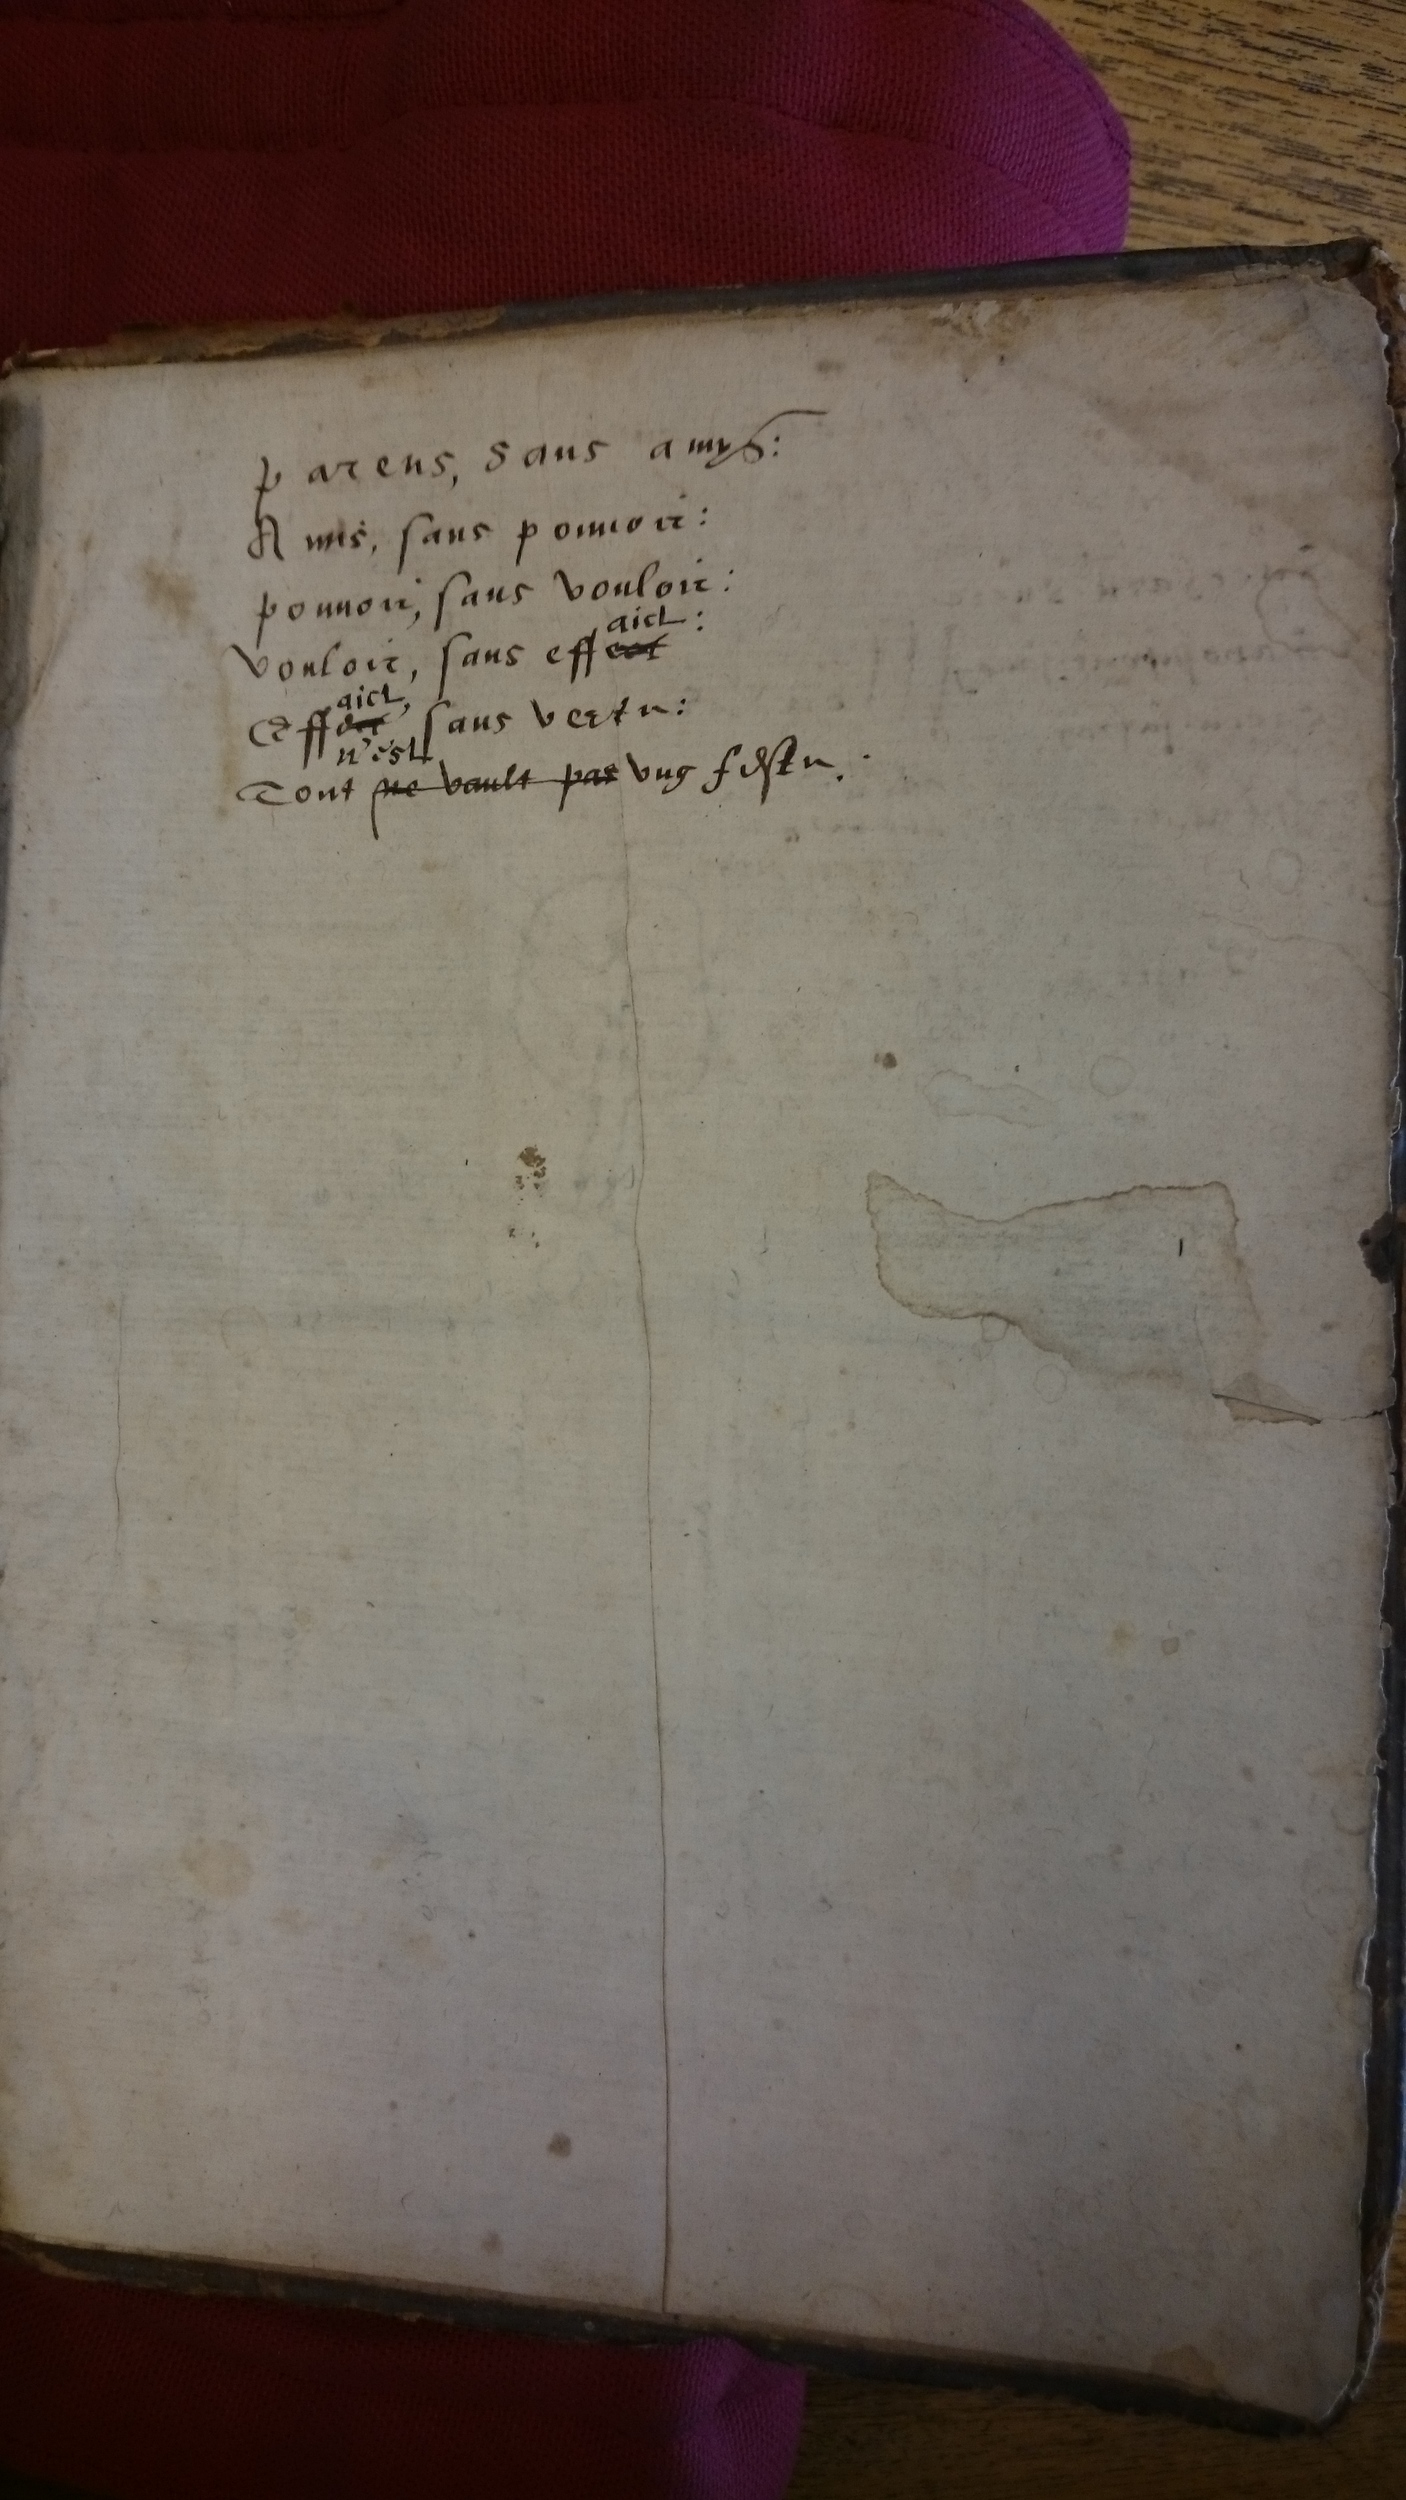 Parens, Sans amys:
Amis, sans pouuoir:
pouuoir, sans vouloir:
vouloir, sans effect aict:
Effect aict, sans vertu:
n'est
Tout ne vault pas vng festu.